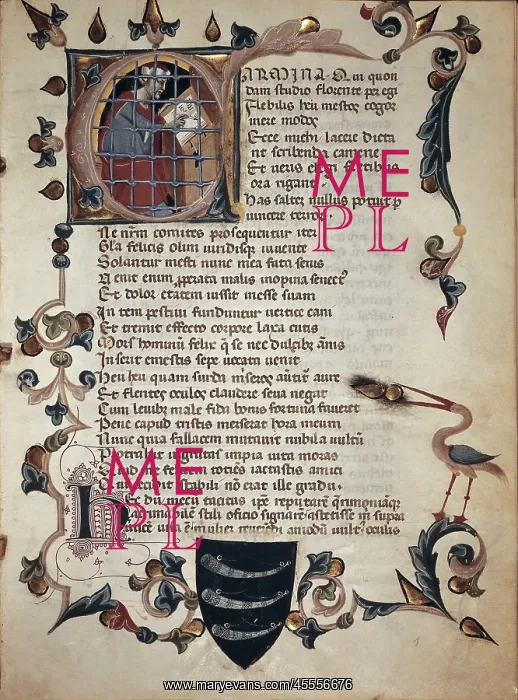 ARMINA. Q ui quon
dam studio florente peregi
Flebilis heu mestos cogor
inire modos
Ecce michi lacere dicta
nt scribenda camene
Et veris elegi fletibus
ora rigant
Has saltem nullus potuit p
vincere terror
Ne nrm comites prosequerentur iter
Gla felicis olim viridisqз iuvente
Solantur mesti nunc mea fata senis
Venit enim properata malis inopina senect9
Et dolor etatem iussit inesse suam
In tempestivi funduntur vertice cani
Et tremit effecto corpore laxa cutis
Mors hominum felix q̄ se nec dulcibz ānis
Inserit et mestis sepe vocata venit
Heu heu quam surda miseros avtit aure
Et flentes oculos claudere seva negat
Cum levibz male fida bonis fortuna faveret
Pene caput tristis merserat hora meum
Nunc quia fallacem mutavit nubila vultū
Protrahit ingratas impia vita moras
Quid me felicem tociēs iactastis amici
Qui cecidit stabili nō erat ille gradu.
Hec dū mecū tacitus ipe reputarē qrimoniāqз
lacrimabilem stili officio signarē astitisse m supra
verticē visa ē mulier reverēdi amodū vult9 oculis
ME
PL
ME
PL
www.maryevans.com/45556676